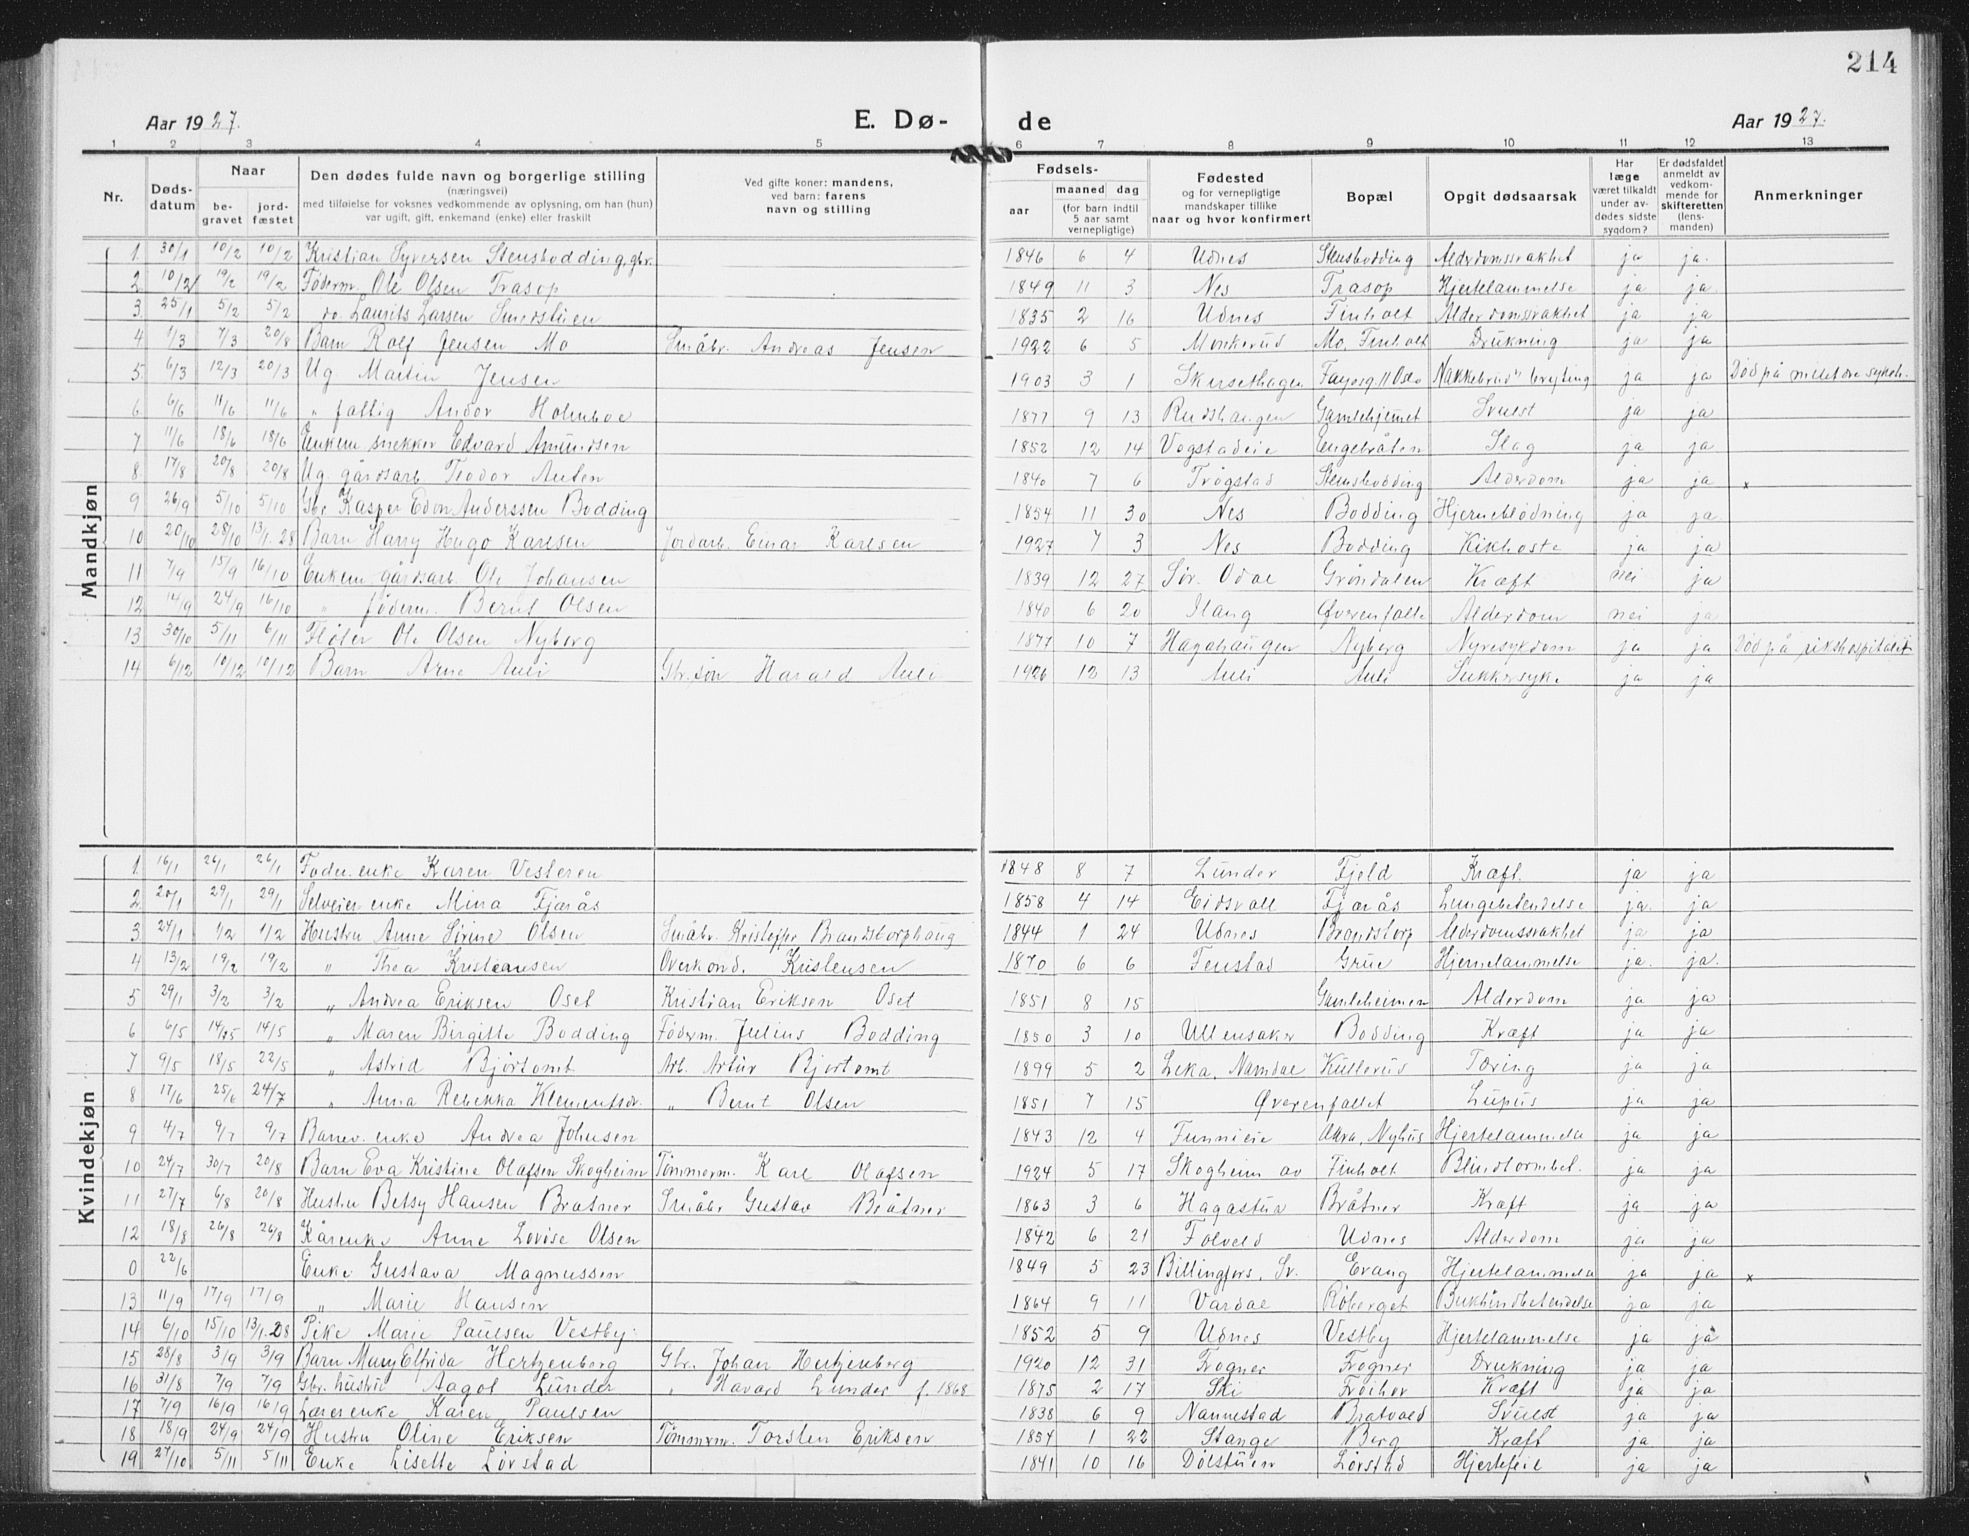 214
Aar 1927. E. Dø- de Aar 1927.
1 2 3 4 5 6 7 8 9 10 11 12 13
Nr. Døds-datum Naar be-gravet jord-fæstet Den dødes fulde navn og borgerlige stilling (næringsvei) med tilføielse for voksnes vedkommende av oplysning, om han (hun) var ugift, gift, enkemand (enke) eller fraskilt Ved gifte koner: mandens, ved barn: farens navn og stilling Fødsels- aar maaned dag (for barn indtil 5 aar samt vernepligtige) Fødested og for vernepligtige mandskaper tillike naar og hvor konfirmert Bopæl Opgit dødsaarsak Har læge været tilkaldt under av-dødes sidste sygdom? Er dødsfaldet anmeldt av vedkom-mende for skifteretten (lens-manden) Anmerkninger
Mandkjøn
1 30/1 10/2 10/2 Kristian Syversen Stensbodding, gbr. 1846 6 4 Udnes Stensbodding Alderdomssvakhet ja ja.
2 10/2 19/2 19/2 Föderm. Ole Olsen Trasop 1849 11 3 Nes Trasop Hjertelammelse ja ja.
3 25/1 5/2 5/2 do. Laurits Larsen Smedstuen 1835 2 16 Udnes Finholt Alderdomssvakhet ja ja
4 1/3 7/3 20/8 Barn Rolf Jensen Mo Småbr. Andreas Jensen 1922 6 5 Monkerud Mo, Finholt Drukning ja ja
5 6/3 12/3 20/3 Ug. Martin Jensen 1903 3 1 Skursethagen Oslo ja ja Död på
6 6/6 11/6 11/6 " fattig Andor Holmboe 1877 9 13 Rudshaugen Gamlehjemet Svulst ja ja
7 11/6 18/6 18/6 Enkem. snekker Edvard Amundsen 1852 12 14 Vogstadeie Engebråten Slag ja ja
8 17/8 20/8 20/8 Ug. gårdsarb. Teodor Auten 1840 7 6 Trögstad Stensbodding Alderdom ja ja x
9 26/9 5/10 5/10 Gbr. Kasper Edon Anderssen Bodding 1854 11 30 Nes Bodding Hjerneblödning ja ja.
10 20/10 28/10 13/1.28 Barn Harry Hugo Karlsen Jordarb. Einar Karlsen 1927 7 3 Nes Bodding Kikhoste ja ja
11 7/9 15/9 16/10 Enkem. gårdsarb. Ole Johansen 1839 12 27 Sör. Odal Gröndalen Kræft nei ja
12 14/9 24/9 16/10 " föderm. Bernt Olsen 1840 6 20 Stang Øverenfallet Alderdom nei ja
13 30/10 5/11 6/11 Flöter Ole Olsen Nyberg 1877 10 7 Hagahaugen Nyberg Nyresykdom ja ja Död på rikshospitalet
14 6/12 10/12 10/12 Barn Arne Auli Gbr.sön Harald Auli 1926 12 13 Auli Auli Sukkersyke ja ja
Kvindekjøn
1 16/1 26/1 26/1 Föder.enke Karen Vesteren 1848 8 7 Lunder Fjeld Kræft. ja ja
2 20/1 29/1 29/1 Selveier enke Mina Fjærås 1858 4 14 Eidsvoll Fjærås Lungebetendelse ja. ja
3 24/1 1/2 1/2 Hustru Anne Sirine Olsen Småbr. Kristoffer Brandstorphaug 1844 1 24 Udnes Brandstorp Alderdomssvakhet ja ja
4 13/2 19/2 19/2 " Thea Kristiansen Overkond. Kristensen 1870 6 6 Fenstad Grue Hjernelammelse ja. ja.
5 29/1 3/2 3/2 " Andrea Eriksen Oset Kristian Eriksen Oset 1851 8 15 Gamleheimen Alderdom ja ja
6 6/5 14/5 14/5 " Maren Birgitte Bodding Föderm. Julius Bodding 1850 3 10 Ullensaker Bodding Kræft ja ja
7 9/5 18/5 22/5 " Astrid Bjørtomt Arb. Artur Bjørtomt 1899 5 2 Leka, Namdal Kullerud Tæring ja ja
8 17/6 25/6 24/7 " Anna Rebekka Klementsdr. " Bernt Olsen 1851 7 15 Øverenfallet Lupus ja ja
9 4/7 9/7 9/7 Banev. enke Andrea Johnsen 1843 12 4 Funnieie Aara, Nyhus Hjertelammelse ja ja
10 24/7 30/7 20/8 Barn Eva Kristine Olafsen Skogheim Tömmerm. Karl Olafsen 1924 5 17 Skogheim av Finholt Blindtarmbet. ja ja
11 27/7 6/8 20/8 Hustru Betsy Hansen Bråtner Småbr. Gustav Bråtner 1863 3 6 Hagastua Bråtner Kræft ja ja
12 18/8 26/8 26/8 Kårenke Anne Lovise Olsen 1842 6 21 Folvell Udnes Alderdom ja ja
0 22/6 Enke Gustava Magnussen 1849 5 23 Billingfors, Sv. Evang Hjertelammelse ja ja x
13 11/9 17/9 17/9 " Marie Hansen 1864 9 11 Vardal Röberget Bukhindbetendelse ja ja
14 6/10 15/10 13/1.28 Pike Marie Paulsen Vestby. 1852 5 9 Udnes Vestby Hjertelammelse ja ja
15 28/8 3/9 3/9 Barn Mary Elfrida Hertzenberg Gbr. Johan Hertzenberg 1920 12 31 Frogner Frogner Drukning ja ja
16 31/8 7/9 7/9 Gbr. hustru Aagot Lunder " Havard Lunder f. 1868 1875 2 17 Ski Kræft ja ja
17 7/9 16/9 16/9 Lærerenke Karen Paulsen 1838 6 9 Nannestad Bratvold Svulst ja ja
18 18/9 24/9 24/9 Hustru Oline Eriksen Tömmerm. Torsten Eriksen 1854 1 22 Stange Berg Kræft ja ja
19 27/10 5/11 5/11 Enke Lisette Lörstad 1841 10 16 Dölstuen Lörstad Hjertefeil ja ja